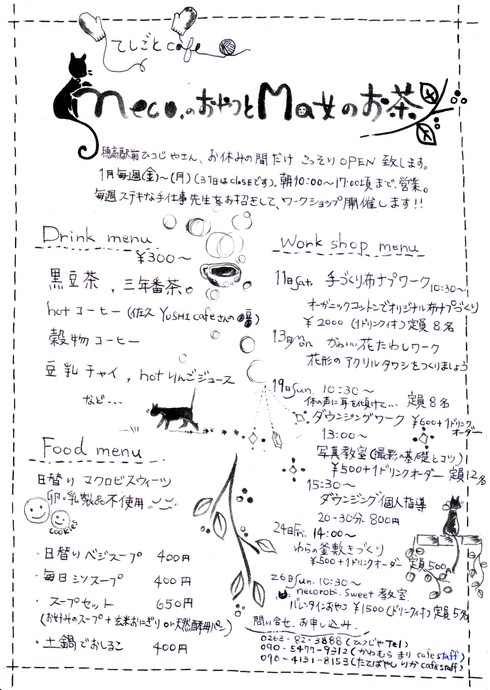 てしごとcafe
neco.のおやつとMa女のお茶
穂高駅前ひつじやさん、お休みの間だけ こっそりOPEN致します。
1月毎週(金)～(月)(37日はcloseです)。朝10:00～17:00頃まで、営業。
毎週ステキな手仕事先生をお招きして、ワークショップ開催します!!
Drink menu
¥300～
黒豆茶、三年番茶。
hotコーヒー(佐久YUSHI cafeさんの豆)
穀物コーヒー
豆乳チャイ、hotりんごジュース
など・・・
Food menu
日替りマクロビスウィーツ
卵・乳製品不使用
cookies
・日替りベジスープ 400円
・毎日ミソスープ 400円
・スープセット 650円
(おけみのスープ+玄米おにぎりor天然酵母パン)
・土鍋でおしるこ 400円
Work shop menu
11日sat. 手づくり布ナプワーク
10:30～
オーガニックコットンでオリジナル布ナプづくり
¥2000(1ドリンク付)定員8名
13日 かわいい花たわしワーク
花形のアクリルタワシをつくりましょう
19日sun. 10:30～
体の声に耳を傾けて… 定員8名
ダウンジングワーク ¥600+1ドリンクオーダー
13:00～
写真教室(撮影の基礎とコツ)
¥500+1ドリンクオーダー 定員12名
15:30～
ダウジング個人指導
20-30分 800円
24日Fri. 14:00～
わらの釜敷きづくり
¥500+1ドリンクオーダー 定員500m
26日sun. 10:30～
necorobi.sweet教室
バレンタインおやつ ¥1500(ドリンク付)定員5名
問い合せ、お申し込み
0263-82-3888(ひつじやTel)
090-5477-9312(かわむら まり cafe staff)
090-4131-8153(たてばやし りか cafe staff)